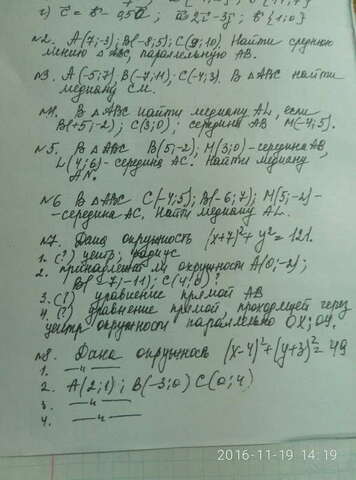 2) c⃗ = b⃗ - 0,5a⃗; a⃗ 2i⃗ - 3j⃗; b⃗ {1; 0}
№2. A(7;-3); B(-8;5); C(9;10). Найти среднюю
линию △ABC, параллельную AB.
№3. A(-5;7); B(-7;11); C(-4;3). В △ABC найти
медиану CM.
№4. В △ABC найти медиану AL, если
B(+5;-2); C(3;0); середина AB M(-4;5).
№5. В △ABC B(5;-2); M(3;0)-середина AB,
L(4;6)-середина AC. Найти медиану
AN.
№6 В △ABC C(-4;5); B(-6;7); M(5;-2)-
-середина AC. Найти медиану AL.
№7. Дана окружность (x+7)²+y²=121.
1. (?) центр; радиус
2. принадлежит ли окружности A(0;-2);
B(-7;-11); C(4;0)?
3. (?) уравнение прямой AB
4. (?) уравнение прямой, проходящей через
центр окружности параллельно OX; OY.
№8. Дана окружность (x-4)²+(y+3)²=49
1. —"—
2. A(2;1); B(-3;0) C(0;4)
3. —"—
4. —"—
2016-11-19 14:19